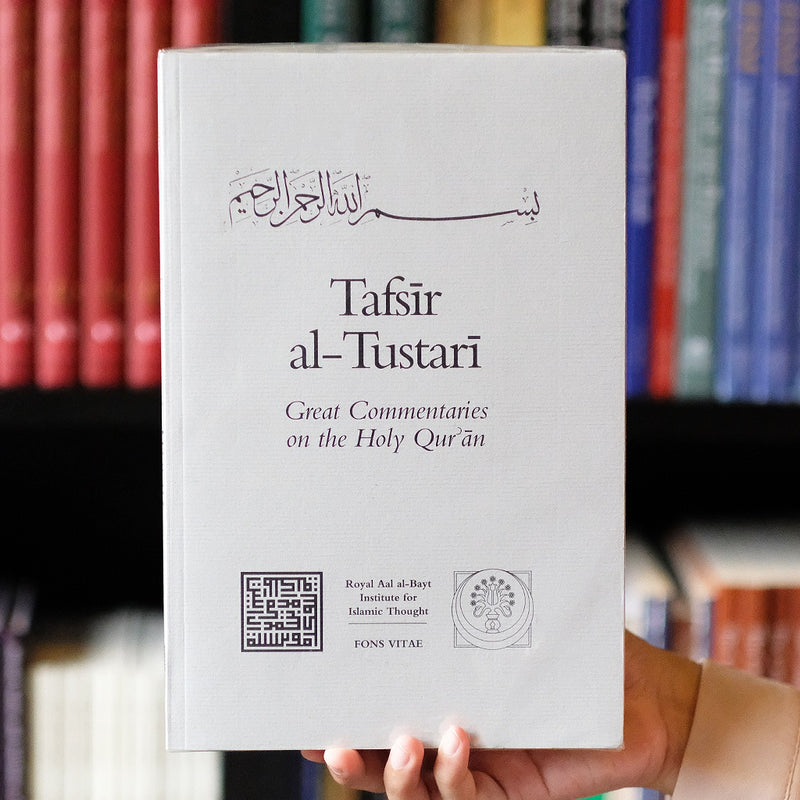 بسم الله الرحمن الرحيم
Tafsīr
al-Tustarī
Great Commentaries
on the Holy Qurʾān
Royal Aal al-Bayt
Institute for
Islamic Thought
FONS VITAE